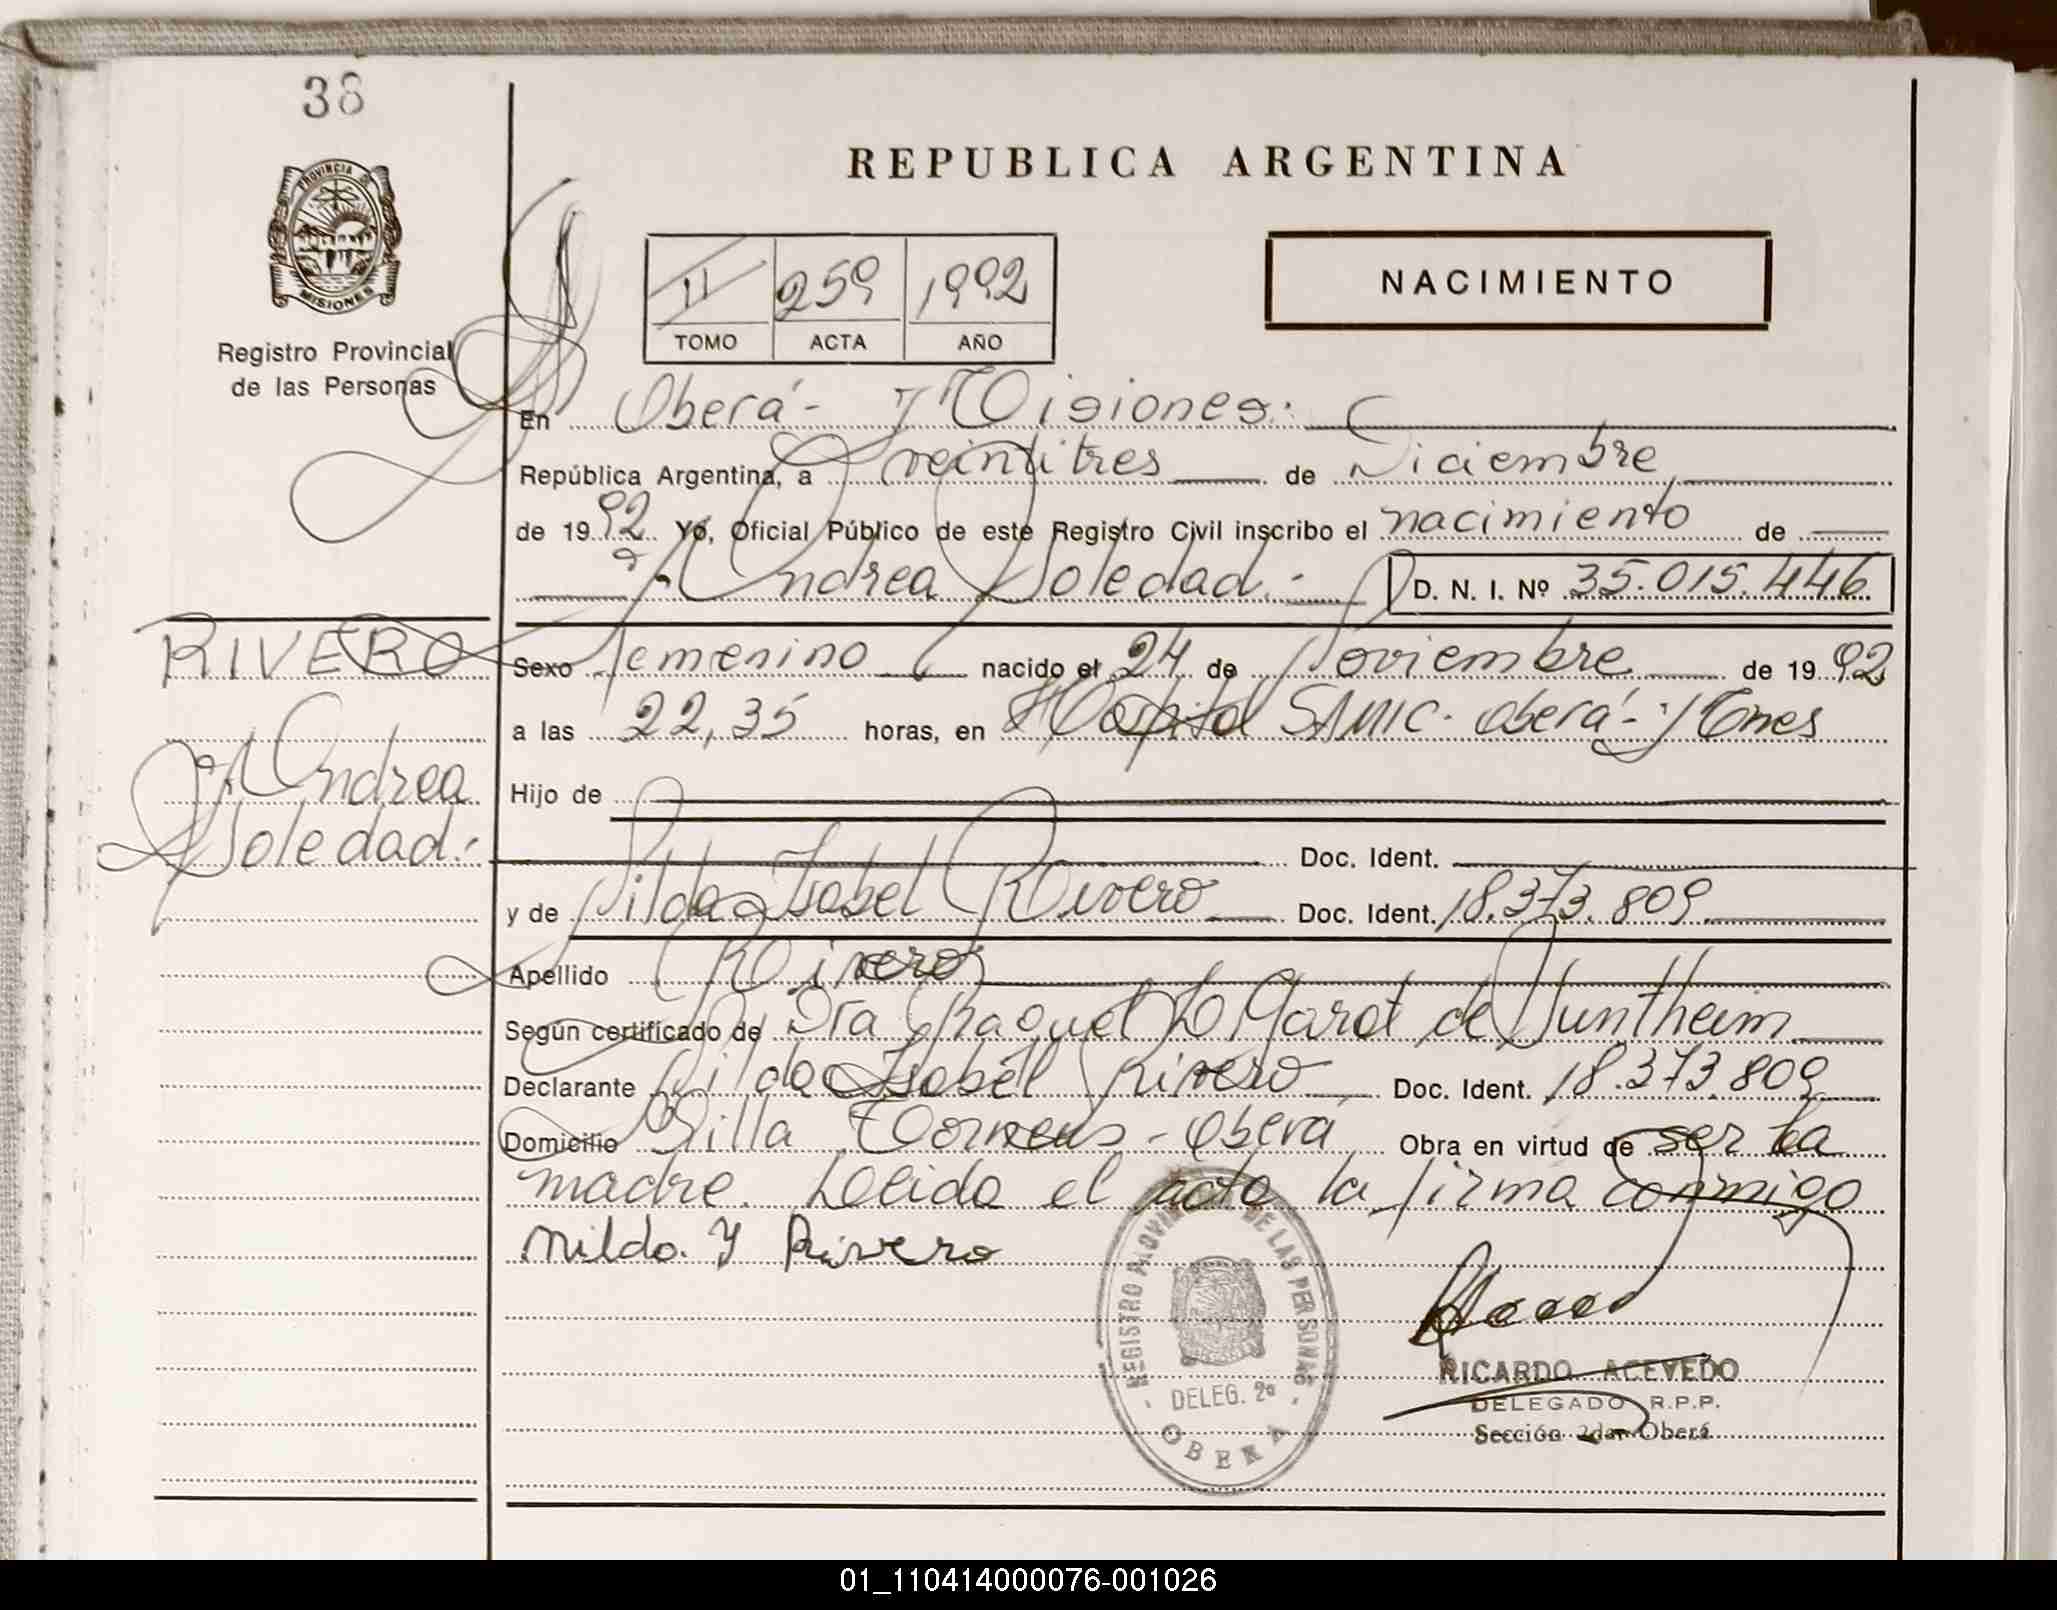 38
REPUBLICA ARGENTINA
PROVINCIA DE
MISIONES
Registro Provincial
de las Personas
II 259 1992
TOMO ACTA AÑO
NACIMIENTO
En Oberá - Misiones:
República Argentina, a veintitres de Diciembre
de 1992 Yo, Oficial Público de este Registro Civil inscribo el nacimiento de
Andrea Soledad.- D. N. I. Nº 35.015.446
RIVERO
Andrea
Soledad.-
Sexo femenino nacido el 24 de Noviembre de 1992
a las 22,35 horas, en Hospital SAMIC. Oberá - Mnes
Hijo de
Doc. Ident.
y de Nilda Isabel Rivero Doc. Ident. 18.373.809
Apellido Rivero
Según certificado de Dra Raquel de
Declarante Nilda Isabel Rivero Doc. Ident. 18.373.809
Domicilio Villa - Oberá Obra en virtud de ser la
madre. Leida el acta la firma conmigo
Nilda. Y Rivero
REGISTRO PROVINCIAL DE LAS PERSONAS
- DELEG. 2ª -
OBERA
RICARDO ACEVEDO
DELEGADO R.P.P.
Sección 2da Oberá
01_110414000076-001026